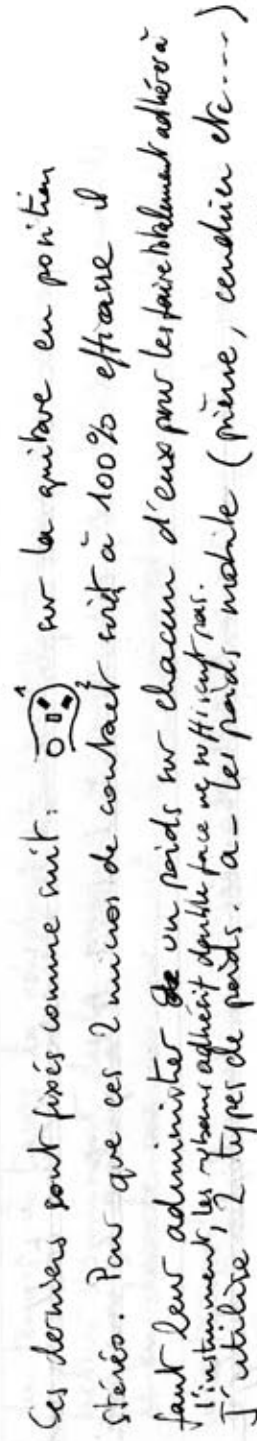 Ces derniers sont fixés comme suit: 1 2 sur la guitare en position
stéréo. Pour que ces 2 micros de contact soit à 100% efficasse il
faut leur administrer un poids sur chacun d'eux pour les faire totalement adhérer à
l'instrument, les rubans adhésif double face ne suffisent pas.
J'utilise 2 types de poids. a- les poids mobile (pierre, cendrier etc...)